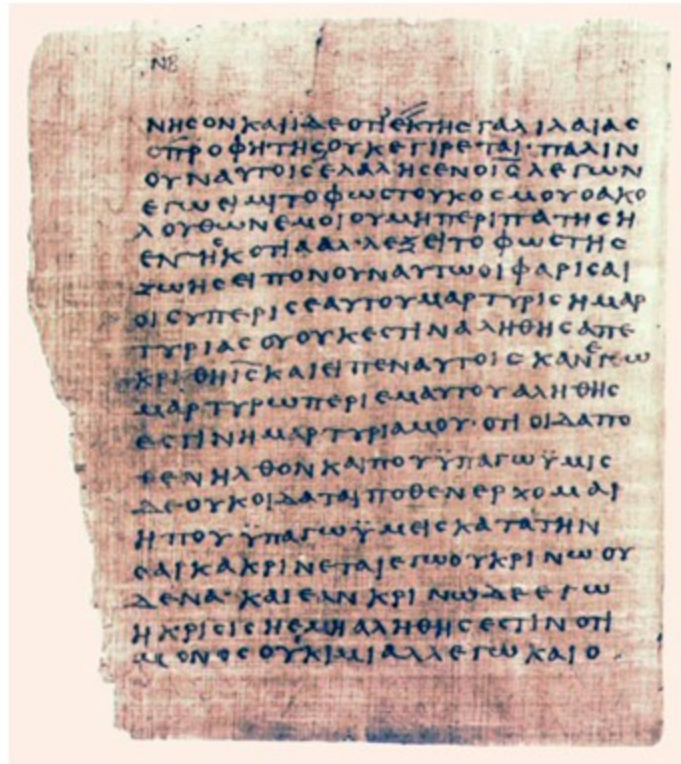 ΝΒ
ΝΗϹΟΝΚΑΙΪΔΕΟΤΙΕΚΤΗϹΓΑΛΙΛΑΙΑϹ
ΟΠΡΟΦΗΤΗϹΟΥΚΕΓΙΡΕΤΑΙ·ΠΑΛΙΝ
ΟΥΝΑΥΤΟΙϹΕΛΑΛΗϹΕΝΟΙ̅Ϲ̅ΛΕΓΩΝ
ΕΓΩΕΙΜΙΤΟΦΩϹΤΟΥΚΟϹΜΟΥΟΑΚΟ
ΛΟΥΘΩΝΕΜΟΙΟΥΜΗΠΕΡΙΠΑΤΗϹΗ
ΕΝΤΗϹΚΟΤΙΑΑΛ·ΛΕΞΕΙΤΟΦΩϹΤΗϹ
ΖΩΗϹΕΙΠΟΝΟΥΝΑΥΤΩΟΙΦΑΡΙϹΑΙ
ΟΙϹΥΠΕΡΙϹΕΑΥΤΟΥΜΑΡΤΥΡΙϹΗΜΑΡ
ΤΥΡΙΑϹΟΥΟΥΚΕϹΤΙΝΑΛΗΘΗϹΑΠΕ
ΚΡΙΘΗΙ̅Ϲ̅ΚΑΙΕΙΠΕΝΑΥΤΟΙϹΚΑΝΕΓΩ
ΜΑΡΤΥΡΩΠΕΡΙΕΜΑΥΤΟΥΑΛΗΘΗϹ
ΕϹΤΙΝΗΜΑΡΤΥΡΙΑΜΟΥ·ΟΤΙΟΙΔΑΠΟ
ΘΕΝΗΛΘΟΝΚΑΙΠΟΥΫΠΑΓΩΫΜΙϹ
ΔΕΟΥΚΟΙΔΑΤΑΙΠΟΘΕΝΕΡΧΟΜΑΙ
ΗΠΟΥΫΠΑΓΩΫΜΕΙϹΚΑΤΑΤΗΝ
ϹΑΡΚΑΚΡΙΝΕΤΑΙΕΓΩΟΥΚΡΙΝΩΟΥ
ΔΕΝΑ·ΚΑΙΕΑΝΚΡΙΝΩΔΕΕΓΩ
ΗΚΡΙϹΙϹΗΕΜΗΑΛΗΘΗϹΕϹΤΙΝΟΤΙ
ΜΟΝΟϹΟΥΚΙΜΙΑΛΛΕΓΩΚΑΙΟ